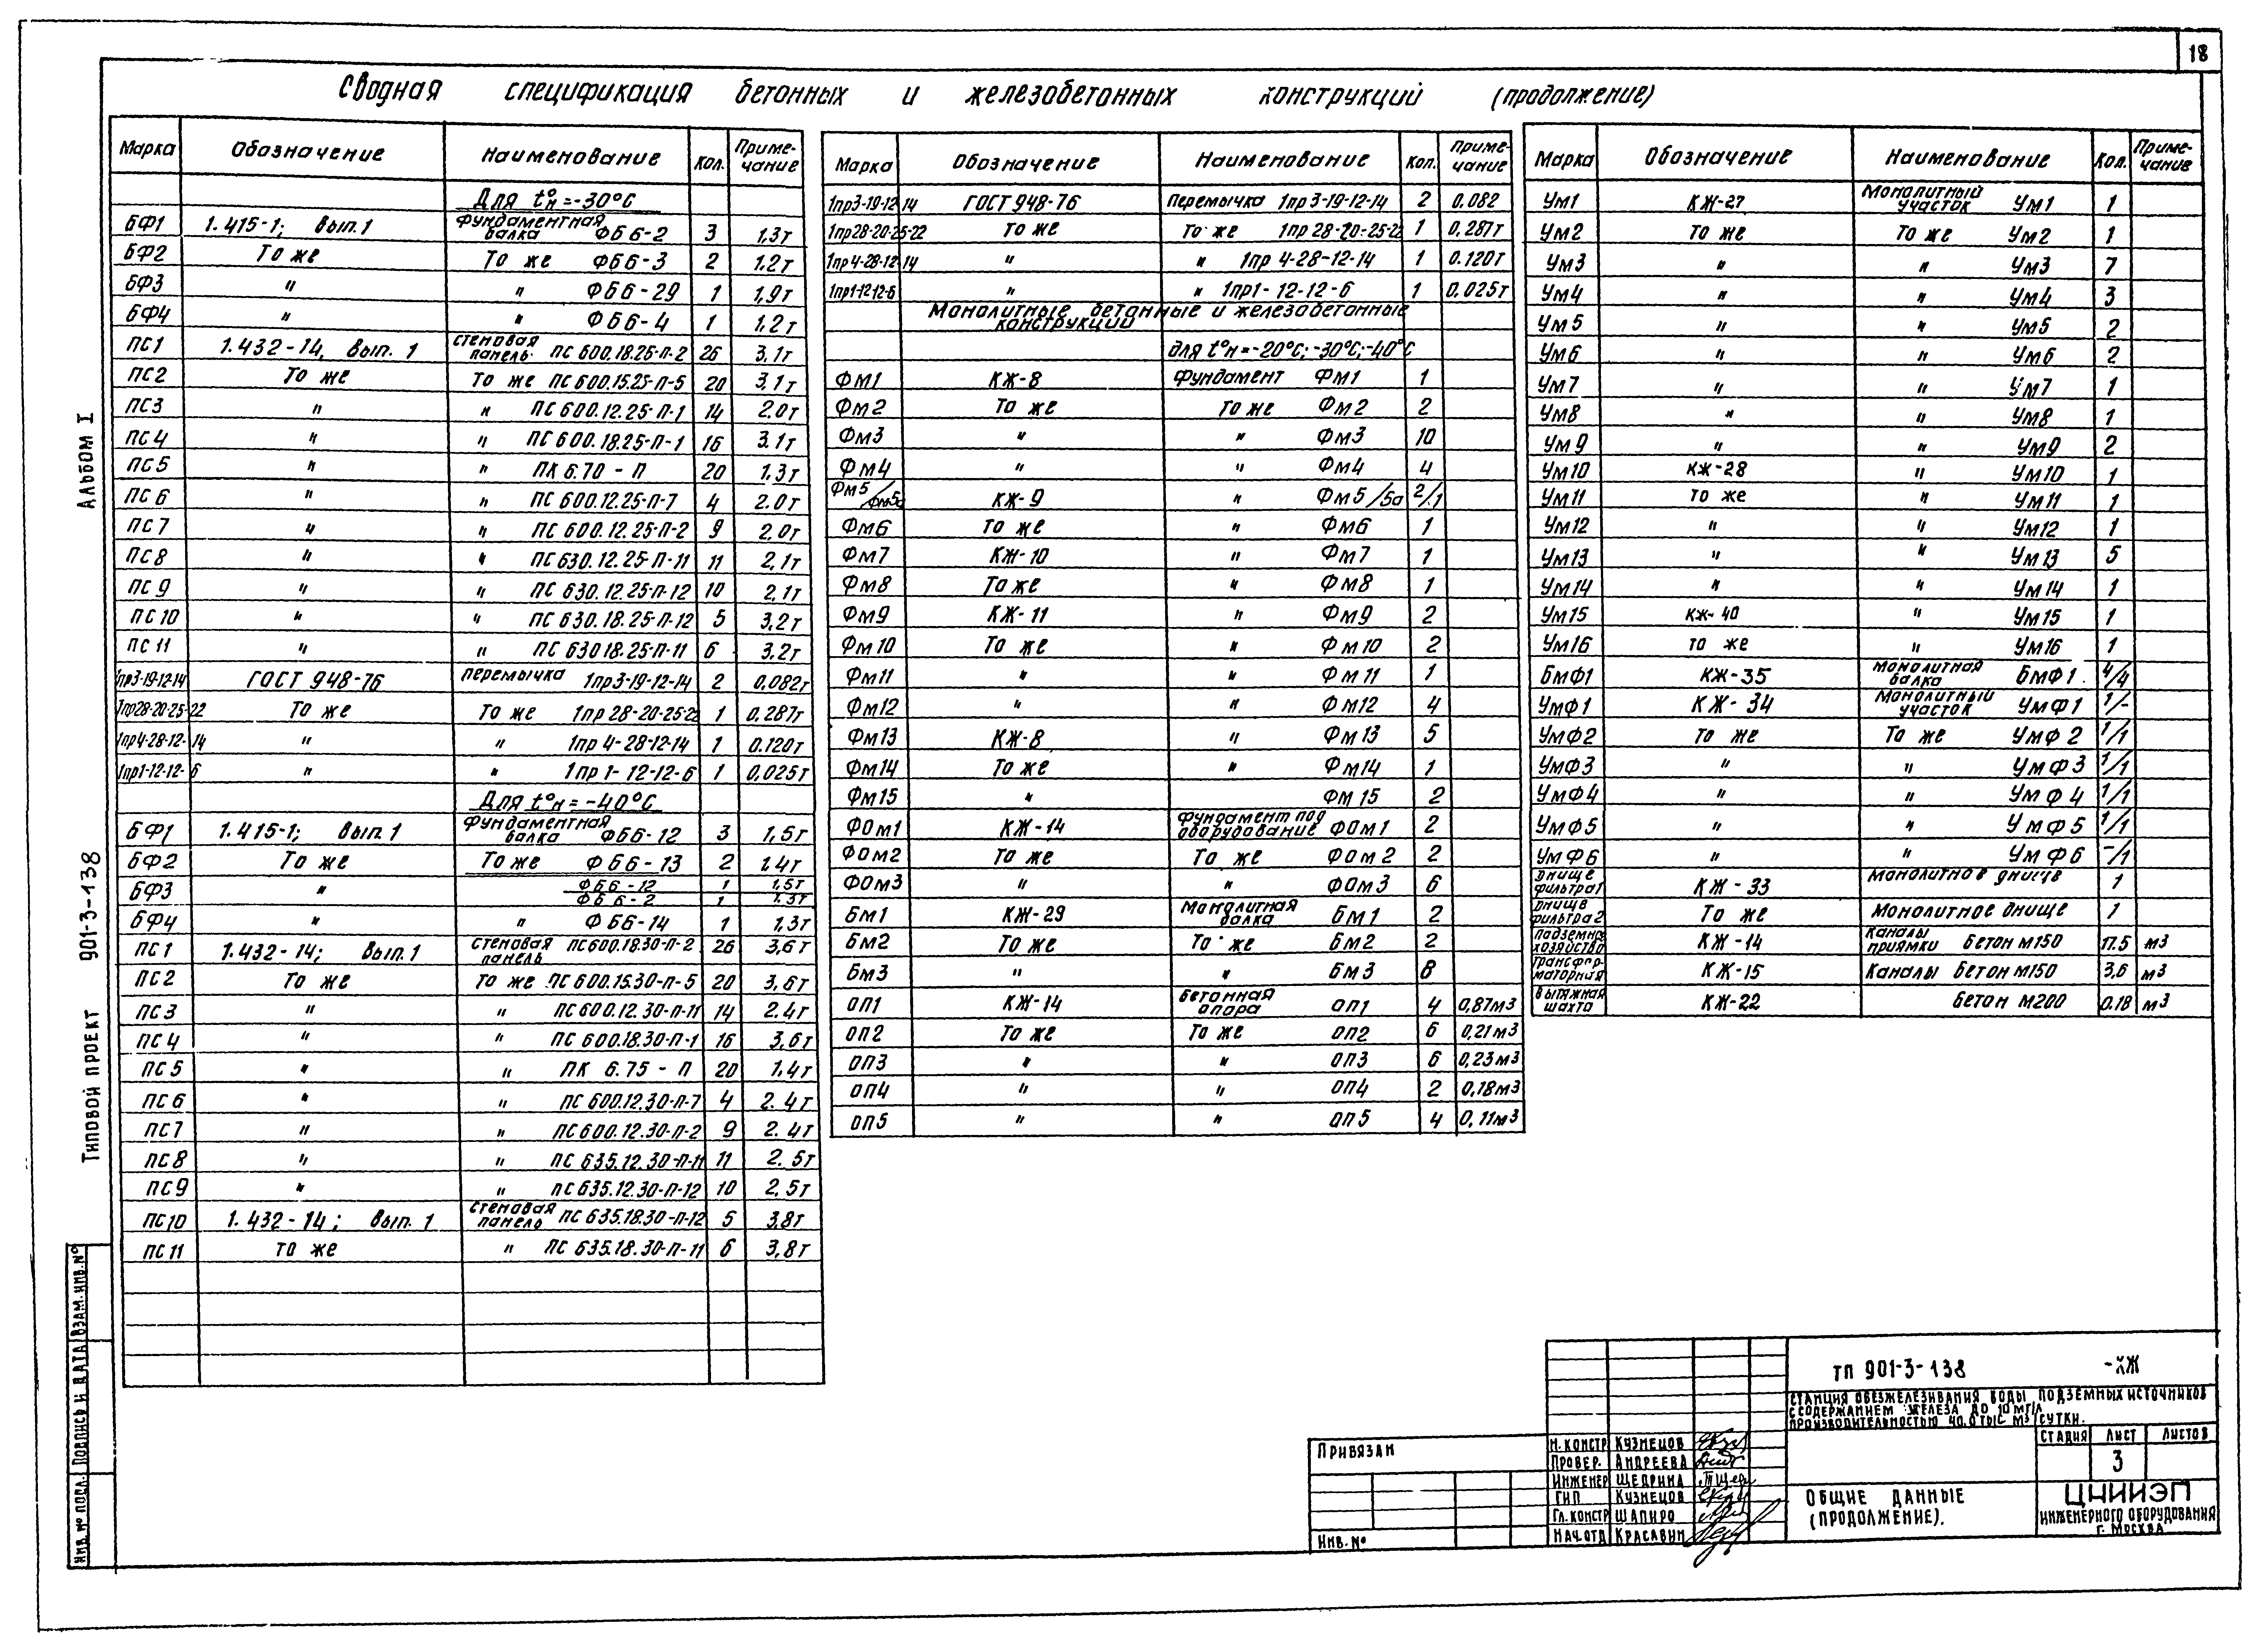 18
Сводная спецификация бетонных и железобетонных конструкций (продолжение)
Марка Обозначение Наименование Кол. Приме-чание
Для t°н=-30°С
БФ1 1.415-1; Вып.1 Фундаментная балка ФБ6-2 3 1,3т
БФ2 То же То же ФБ6-3 2 1.2т
БФ3 " " ФБ6-29 1 1,9т
БФ4 " " ФБ6-4 1 1,2т
ПС1 1.432-14, Вып. 1 стеновая панель ПС 600.18.25-П-2 26 3,1т
ПС2 То же То же ПС 600.15.25-П-5 20 3,1т
ПС3 " " ПС 600.12.25-П-1 14 2.0т
ПС4 " " ПС 600.18.25-П-1 16 3.1т
ПС5 " " ПК 6.70-П 20 1,3т
ПС6 " " ПС 600.12.25-П-7 4 2.0т
ПС7 " " ПС 600.12.25-П-2 9 2,0т
ПС8 " " ПС 630.12.25-П-11 11 2,1т
ПС9 " " ПС 630.12.25-П-12 10 2,1т
ПС10 " " ПС 630.18.25-П-12 5 3.2т
ПС11 " " ПС 63018.25-П-11 6 3,2т
1пр3-19-12-14 ГОСТ 948-76 перемычка 1пр3-19-12-14 2 0,082т
1пр28-20-25-22 То же То же 1пр 28-20-25-22 1 0,287т
1пр4-28-12-14 " " 1пр 4-28-12-14 1 0.120т
1пр1-12-12-6 " " 1пр 1-12-12-6 1 0,025т
Для t°н=-40°С
БФ1 1.415-1; Вып.1 Фундаментная балка ФБ6-12 3 1,5т
БФ2 То же То же ФБ6-13 2 1.4т
БФ3 " ФБ6-12 1 1,5т
ФБ6-2 1 1.3т
БФ4 " " ФБ6-14 1 1,3т
ПС1 1.432-14; Вып.1 Стеновая панель ПС600.18.30-П-2 26 3,6т
ПС2 То же То же ПС 600.15.30-П-5 20 3,6т
ПС3 " " ПС600.12.30-П-11 14 2.4т
ПС4 " " ПС 600.18.30-П-1 16 3,6т
ПС5 " " ПК 6.75-П 20 1,4т
ПС6 " " ПС 600.12.30-П-7 4 2.4т
ПС7 " " ПС600.12.30-П-2 9 2.4т
ПС8 " " ПС 635.12.30-П-11 11 2.5т
ПС9 " " ПС635.12.30-П-12 10 2,5т
ПС10 1.432-14; Вып. 1 Стеновая панель ПС 635.18.30-П-12 5 3,8т
ПС11 то же " ПС 635.18.30-П-11 6 3,8т
Марка Обозначение Наименование Кол. Приме-чание
1пр3-19-12 14 ГОСТ 948-76 Перемычка 1пр3-19-12-14 2 0.082
1пр28-20-25-22 То же То же 1пр 28-20-25-22 1 0,287т
1пр4-28-12 14 " " 1пр 4-28-12-14 1 0.120т
1пр1-12 12-6 " " 1пр1-12-12-6 1 0.025т
Монолитные бетонные и железобетонные конструкции
для t°н=-20°С; -30°С; -40°С
Фм1 КЖ-8 Фундамент Фм1 1
Фм2 То же То же Фм2 2
Фм3 " " Фм3 10
Фм4 " " Фм4 4
Фм5/Фм5а КЖ-9 " Фм5/5а 2/1
Фм6 То же " Фм6 1
Фм7 КЖ-10 " Фм7 1
Фм8 То же " Фм8 1
Фм9 КЖ-11 " Фм9 2
Фм10 То же " Фм10 2
Фм11 " " Фм11 1
Фм12 " " Фм12 4
Фм13 КЖ-8 " Фм13 5
Фм14 То же " Фм14 1
Фм15 " Фм15 2
ФОм1 КЖ-14 Фундамент под оборудование ФОм1 2
ФОм2 То же То же ФОм2 2
ФОм3 " " ФОм3 6
Бм1 КЖ-29 Монолитная балка Бм1 2
Бм2 То же То же Бм2 2
Бм3 " " Бм3 8
ОП1 КЖ-14 Бетонная опора ОП1 4 0,87м3
ОП2 То же То же ОП2 6 0,21м3
ОП3 " " ОП3 6 0,23м3
ОП4 " " ОП4 2 0,18м3
ОП5 " " ОП5 4 0,11м3
Марка Обозначение Наименование Кол. Приме-чание
Ум1 КЖ-27 Монолитный участок Ум1 1
Ум2 То же То же Ум2 1
Ум3 " " Ум3 7
Ум4 " " Ум4 3
Ум5 " " Ум5 2
Ум6 " " Ум6 2
Ум7 " " Ум7 1
Ум8 " " Ум8 1
Ум9 " " Ум9 2
Ум10 КЖ-28 " Ум10 1
Ум11 То же " Ум11 1
Ум12 " " Ум12 1
Ум13 " " Ум13 5
Ум14 " " Ум14 1
Ум15 КЖ-40 " Ум15 1
Ум16 то же " Ум16 1
БмФ1 КЖ-35 Монолитная балка БмФ1 4/4
УмФ1 КЖ-34 Монолитный участок УмФ1 1/-
УмФ2 То же То же УмФ2 1/1
УмФ3 " " УмФ3 1/1
УмФ4 " " УмФ4 1/1
УмФ5 " " УмФ5 1/1
УмФ6 " " УмФ6 -/1
Днище фильтра1 КЖ-33 Монолитное днище 1
Днище фильтра2 То же Монолитное днище 1
Подземно хозяйство КЖ-14 Каналы приямки Бетон М150 17.5 м3
Трансфор-маторная КЖ-15 Каналы Бетон М150 3,6 м3
Вытяжная шахта КЖ-22 Бетон М200 0.18 м3
Альбом I
Типовой проект 901-3-138
Инв. № подл. Подпись и дата Взам. инв. №
Привязан
Инв. №
Н. констр Кузнецов
Провер. Андреева
Инженер Щедрина
ГИП Кузнецов
Гл. констр Шапиро
Нач. отд Красавин
ТП 901-3-138 -КЖ
Станция обезжелезивания воды подземных источников
с содержанием железа до 10мг/л
производительностью 40,0 тыс м3/сутки.
Стадия Лист Листов
3
Общие данные
(продолжение).
ЦНИИЭП
инженерного оборудования
г. Москва